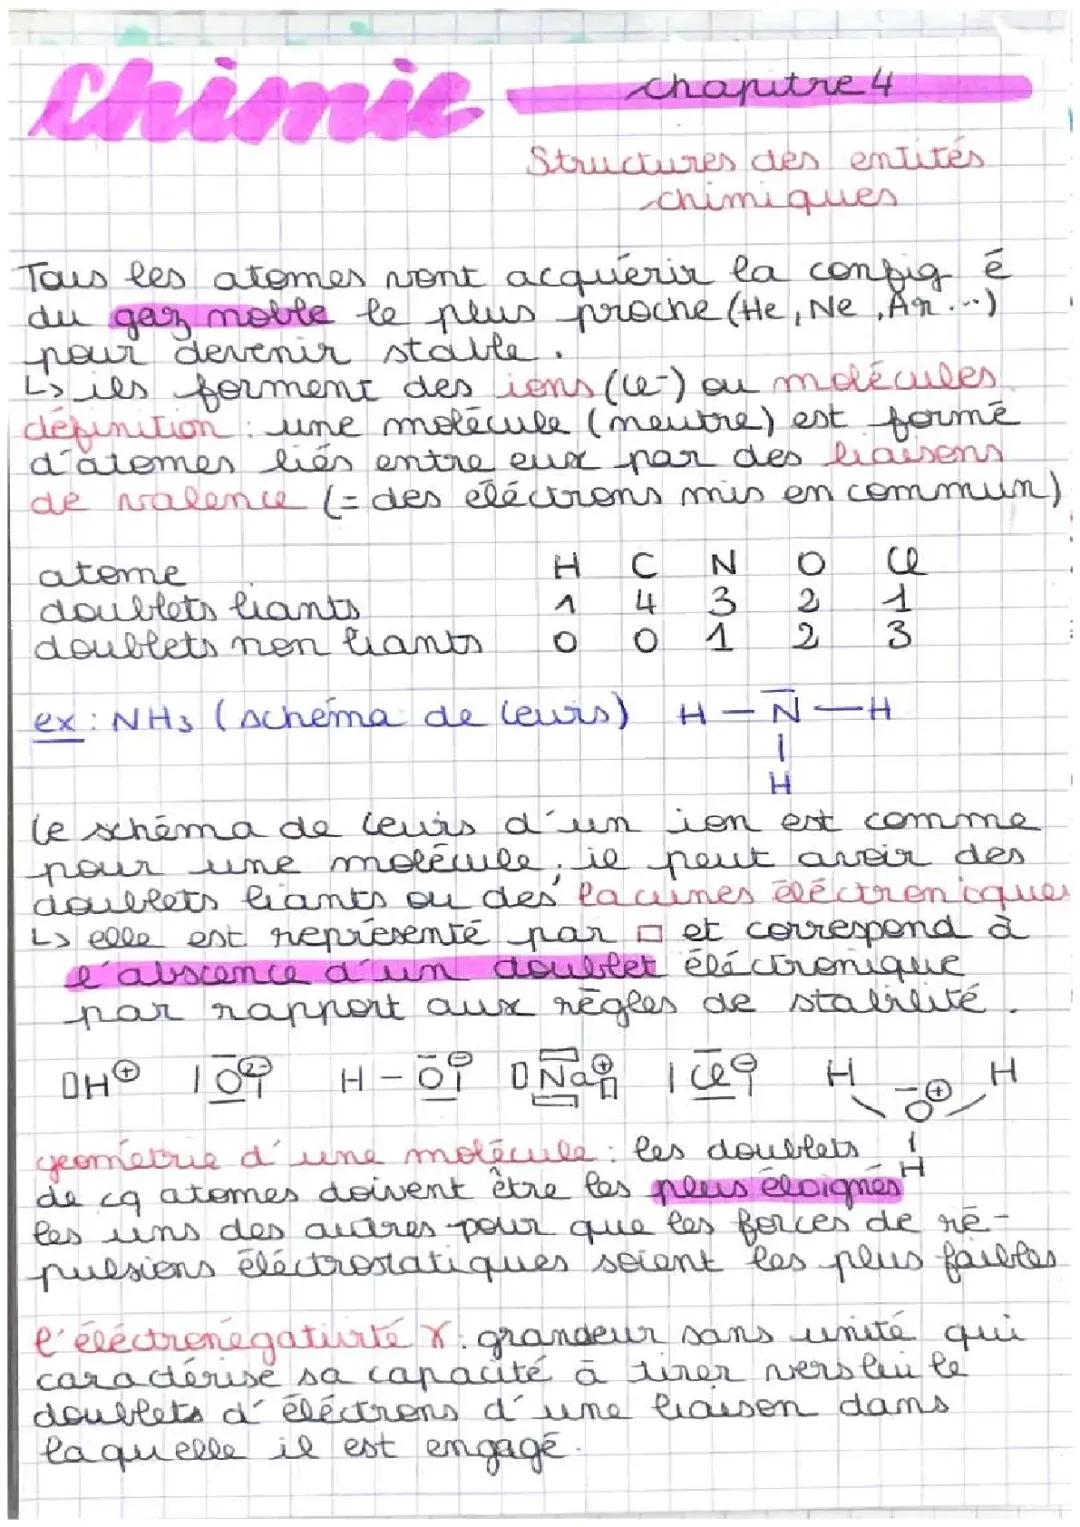 Chimie chapitre 4
Structures des entités
chimiques
Tous les atomes vont acquérir la config é
du gaz noble le plus proche (He, Ne, Ar...)
pour devenir stable.
↳ ils forment des ions (Cl⁻) ou molécules
définition : une molécule (neutre) est formé
d'atomes liés entre eux par des liaisons
de valence (= des éléctrons mis en commun)
atome H C N O Cl
doublets liants 1 4 3 2 1
doublets non liants 0 0 1 2 3
ex : NH₃ (schéma de Lewis) H — N — H
H
Le schéma de Lewis d'un ion est comme
pour une molécule, il peut avoir des
doublets liants ou des lacunes éléctronicques
↳ elle est représenté par □ et correspond à
l'abscence d'un doublet éléctronique
par rapport aux règles de stabilité.
□H⊕ |O²⁻| H – O⊖| □Na⊕□ |Cl⊖| H O⊕ H
H
géométrie d'une molécule : les doublets
de cq atomes doivent être les plus éloignés
les uns des autres pour que les forces de ré-
pulsions éléctrostatiques soient les plus faibles
l'éléctronégativité χ : grandeur sans unité qui
caractérise sa capacité à tirer vers lui le
doublets d'éléctrons d'une liaison dans
laquelle il est engagé.